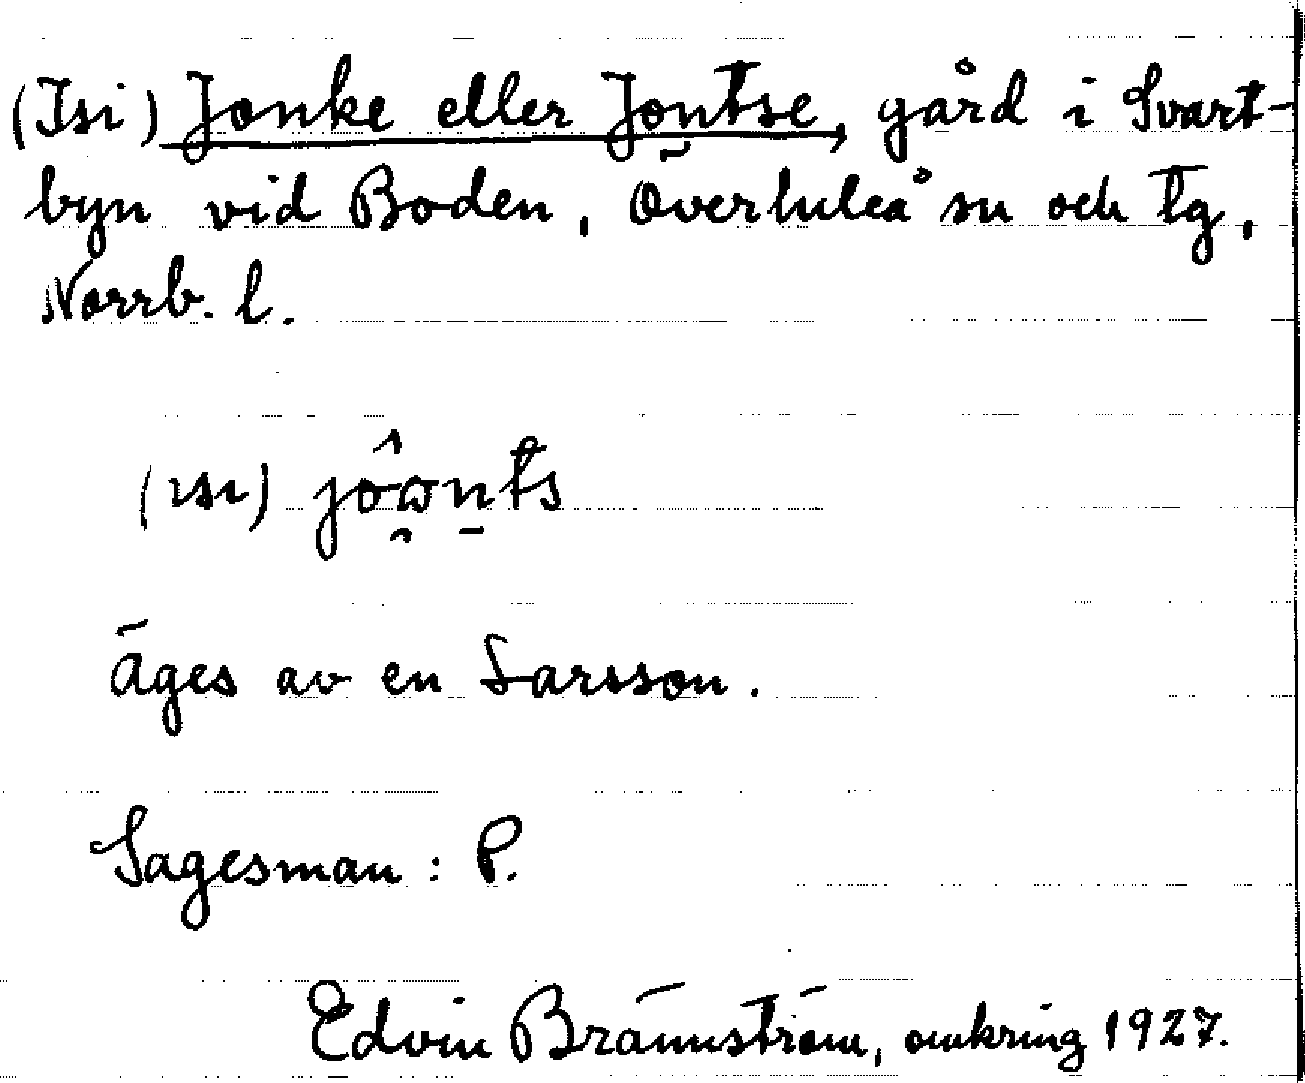 (Isi) Jonke eller Jontse, gård i Svart-
byn vid Boden, Överluleå sn och tg,
Norrb. l.
(ısı) jôɷn̠ts
Äges av en Larsson.
Sagesman: P.
Edvin Brännström, omkring 1927.